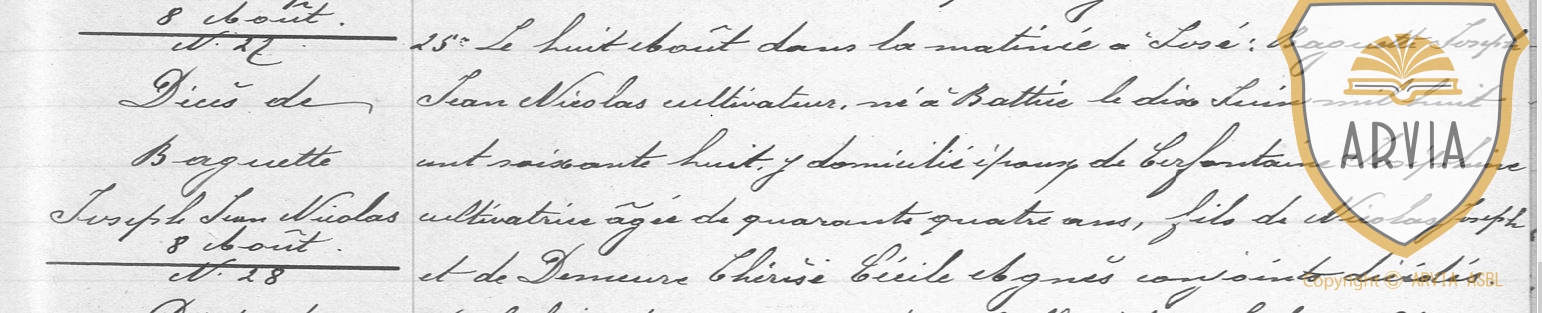 8 Août.
N. 27
Décès de
Baguette
Joseph Jean Nicolas
8 Août.
N. 28
25° Le huit Août dans la matinée à José: Baguette Joseph
Jean Nicolas cultivateur, né à Battice le dix Juin mil huit
cent soixante huit, y domicilié époux de Cerfontaine Joséphine
cultivatrice âgée de quarante quatre ans, fils de Nicolas Joseph
et de Demeure Thérèse Cécile Agnès conjoints décédés.
ARVIA
Copyright © ARVIA ASBL